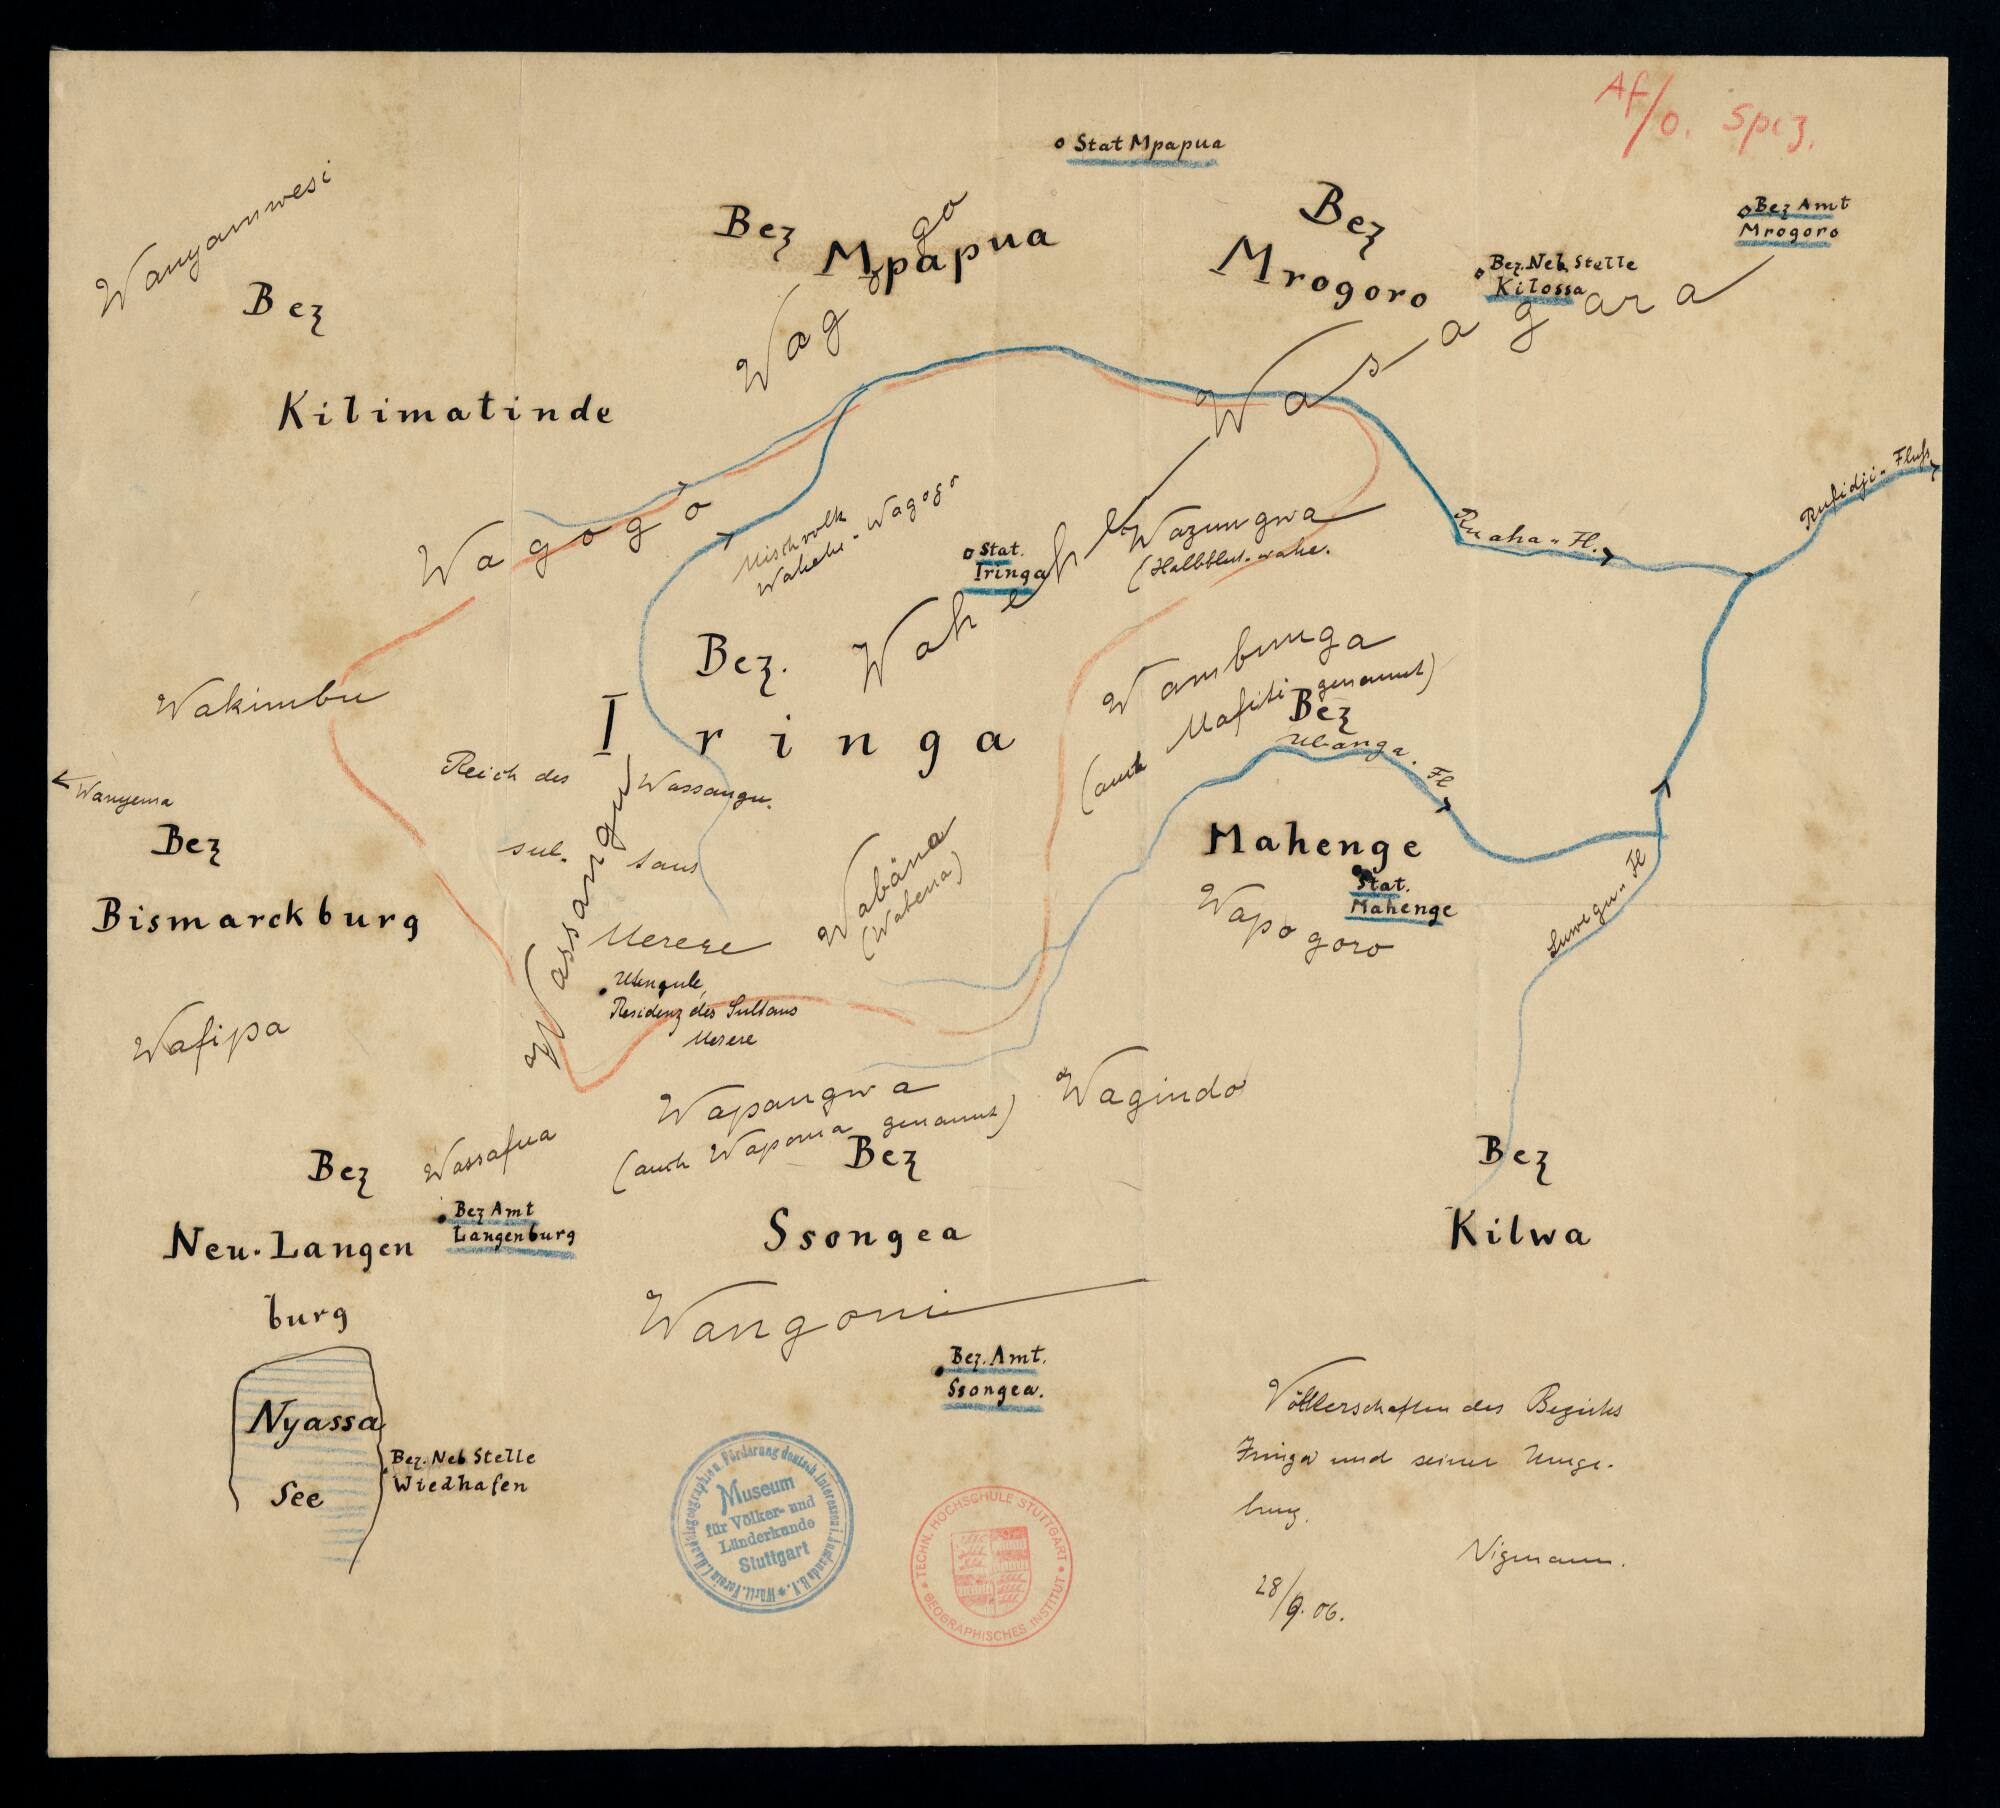 Af/o. Spez.
o Stat Mpapua
Wanyamwesi
Bez
Mpapua
Bez
Mrogoro
Bez Amt
Mrogoro
Bez. Neb. Stelle
Kilossa
Bez
Kilimatinde
Wagogo
Wasagara
Rufidji-Fluss
Wagogo
Mischvolk
Wahehe-Wagogo
Stat.
Iringa
Wahehe
Wazungwa
(Halbblut-wahe.
Ruaha-Fl.
Bez.
Iringa
Wambunga
(auch Mafiti genannt)
Wakimbu
Bez
Ulanga-Fl
Reich des Wassangu-
sul- tans
Merere
Wanyema
Bez
Bismarckburg
Wassangu
Wabäna
(Wabena)
Mahenge
Stat.
Mahenge
Wapogoro
Luwegu-Fl
Utengule,
Residenz des Sultans
Merere
Wafipa
Wapangwa
(auch Wapoma genannt)
Wagindo
Bez
Neu-Langen
burg
Wassafua
Bez Amt
Langenburg
Bez
Ssongea
Bez
Kilwa
Wangoni
Bez. Amt.
Ssongea.
Nyassa
See
Bez. Neb Stelle
Wiedhafen
Württ. Verein f. Handelsgeographie u. Förderung deutsch. Interessen i. Auslande E.V.
Museum
für Völker- und
Länderkunde
Stuttgart
TECHN. HOCHSCHULE STUTTGART
GEOGRAPHISCHES INSTITUT
Völkerschaften des Bezirks
Iringa und seiner Umge-
bung.
Nigmann.
28/9. 06.